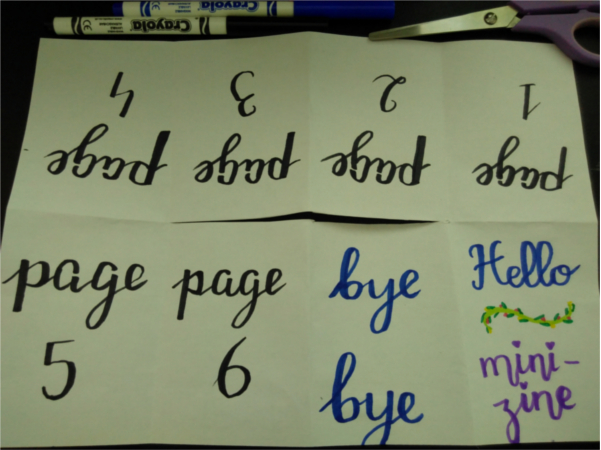 Crayola
Crayola
4
3
2
1
page
page
page
page
page
5
page
6
bye
bye
Hello
mini-
zine